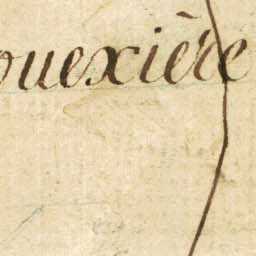 ouexière